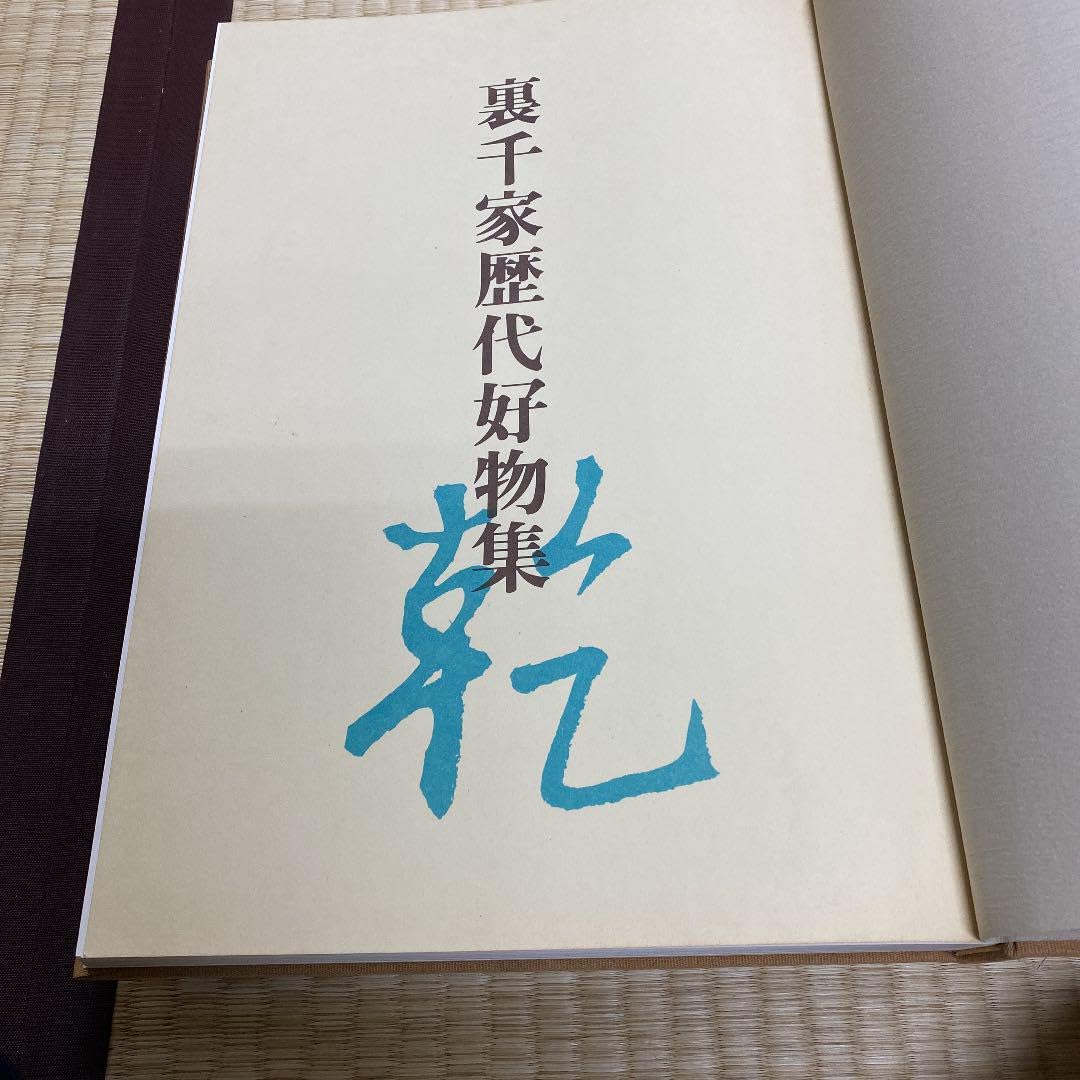 裏千家歴代好物集
乾